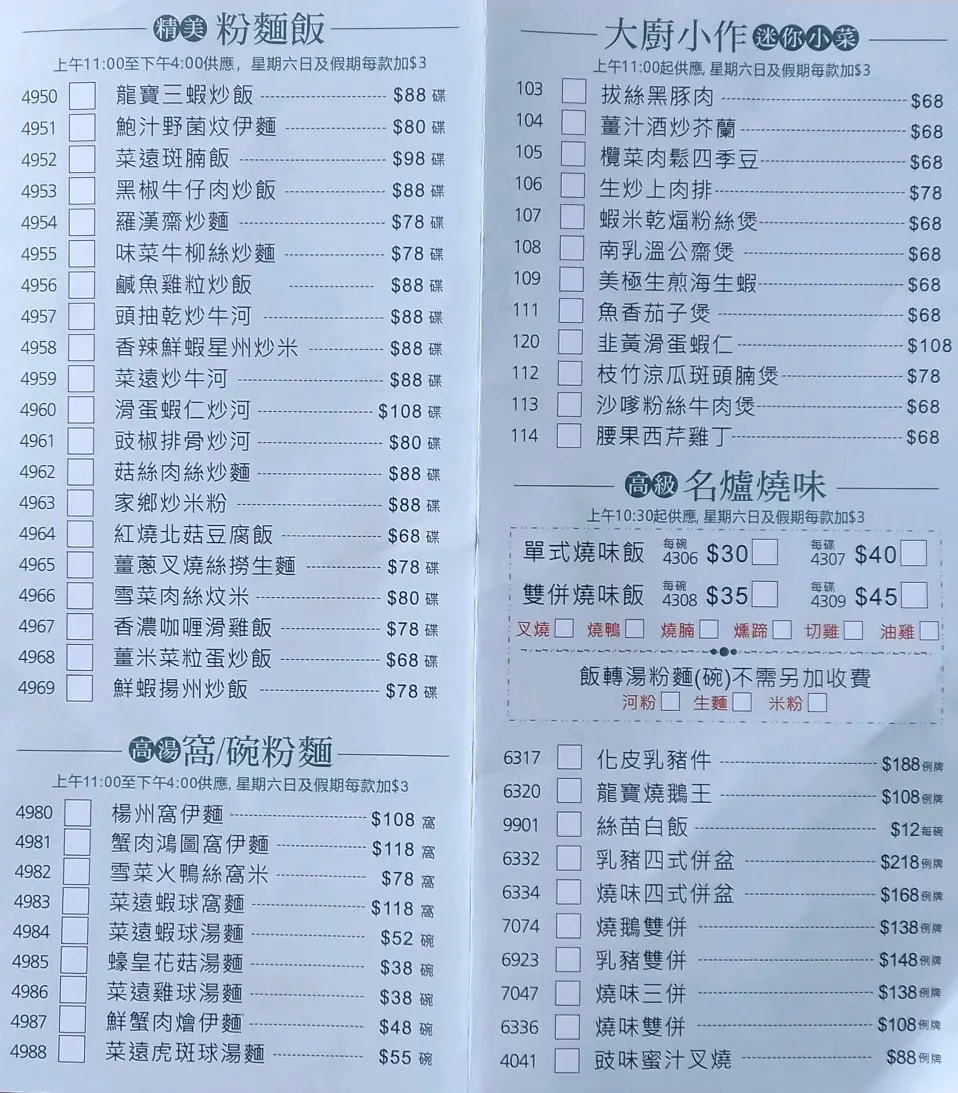 精美 粉麵飯
上午11:00至下午4:00供應，星期六日及假期每款加$3
4950 龍寶三蝦炒飯 $88 碟
4951 鮑汁野菌炆伊麵 $80 碟
4952 菜遠斑腩飯 $98 碟
4953 黑椒牛仔肉炒飯 $88 碟
4954 羅漢齋炒麵 $78 碟
4955 味菜牛柳絲炒麵 $78 碟
4956 鹹魚雞粒炒飯 $88 碟
4957 頭抽乾炒牛河 $88 碟
4958 香辣鮮蝦星州炒米 $88 碟
4959 菜遠炒牛河 $88 碟
4960 滑蛋蝦仁炒河 $108 碟
4961 豉椒排骨炒河 $80 碟
4962 菇絲肉絲炒麵 $88 碟
4963 家鄉炒米粉 $88 碟
4964 紅燒北菇豆腐飯 $68 碟
4965 薑蔥叉燒絲撈生麵 $78 碟
4966 雪菜肉絲炆米 $80 碟
4967 香濃咖喱滑雞飯 $78 碟
4968 薑米菜粒蛋炒飯 $68 碟
4969 鮮蝦揚州炒飯 $78 碟
高湯 窩/碗粉麵
上午11:00至下午4:00供應, 星期六日及假期每款加$3
4980 楊州窩伊麵 $108 窩
4981 蟹肉鴻圖窩伊麵 $118 窩
4982 雪菜火鴨絲窩米 $78 窩
4983 菜遠蝦球窩麵 $118 窩
4984 菜遠蝦球湯麵 $52 碗
4985 蠔皇花菇湯麵 $38 碗
4986 菜遠雞球湯麵 $38 碗
4987 鮮蟹肉燴伊麵 $48 碗
4988 菜遠虎斑球湯麵 $55 碗
大廚小作 迷你小菜
上午11:00起供應, 星期六日及假期每款加$3
103 拔絲黑豚肉 $68
104 薑汁酒炒芥蘭 $68
105 欖菜肉鬆四季豆 $68
106 生炒上肉排 $78
107 蝦米乾煏粉絲煲 $68
108 南乳溫公齋煲 $68
109 美極生煎海生蝦 $68
111 魚香茄子煲 $68
120 韭黃滑蛋蝦仁 $108
112 枝竹涼瓜斑頭腩煲 $78
113 沙嗲粉絲牛肉煲 $68
114 腰果西芹雞丁 $68
高級 名爐燒味
上午10:30起供應, 星期六日及假期每款加$3
單式燒味飯 每碗 4306 $30 每碟 4307 $40
雙併燒味飯 每碗 4308 $35 每碟 4309 $45
叉燒 燒鴨 燒腩 燻蹄 切雞 油雞
飯轉湯粉麵(碗)不需另加收費
河粉 生麵 米粉
6317 化皮乳豬件 $188 例牌
6320 龍寶燒鵝王 $108 例牌
9901 絲苗白飯 $12 每碗
6332 乳豬四式併盆 $218 例牌
6334 燒味四式併盆 $168 例牌
7074 燒鵝雙併 $138 例牌
6923 乳豬雙併 $148 例牌
7047 燒味三併 $138 例牌
6336 燒味雙併 $108 例牌
4041 豉味蜜汁叉燒 $88 例牌